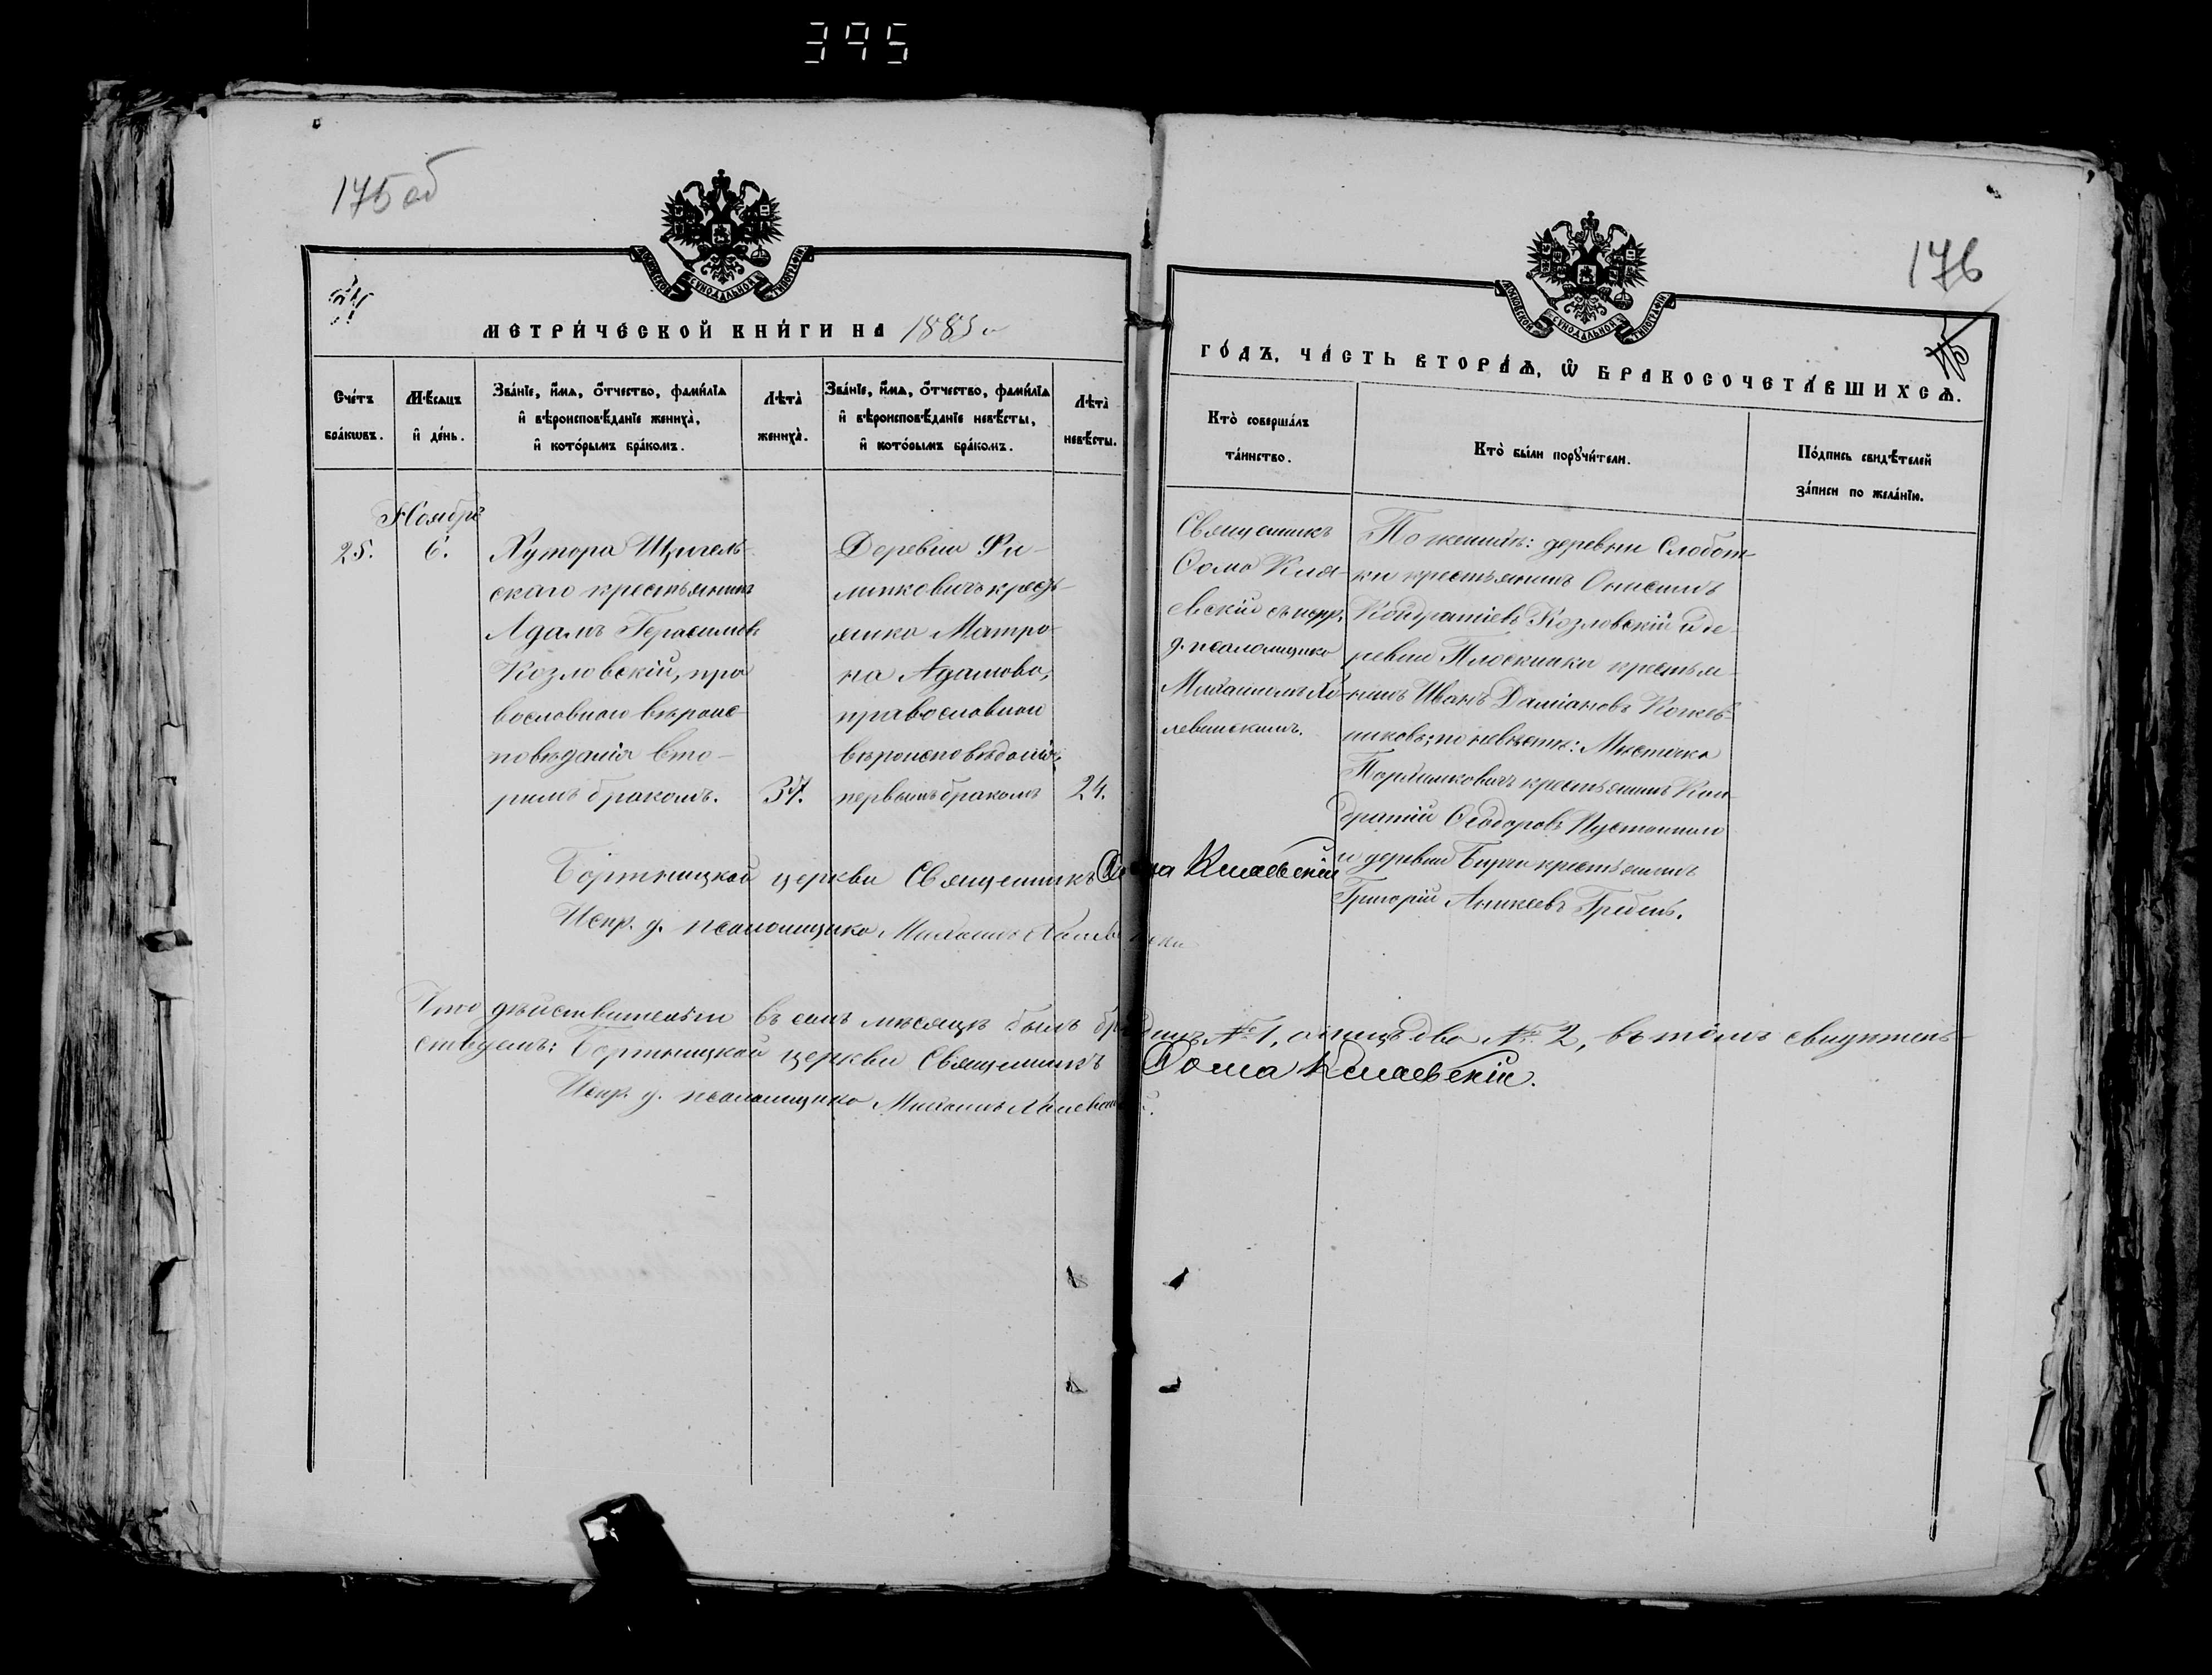 395
175 об
176
МЕТРИ́ЧЕСКОЙ КНИ́ГИ НА 1883 г
ГО́ДЪ, ЧА́СТЬ ВТОРА́Ѧ, Ѽ БРАКОСОЧЕТА́ВШИХСѦ.
Сче́тъ бра́кѡвъ.
Мѣ́сѧцъ и҆ де́нь.
Зва́нїе, и҆́мѧ, ѻ҆́тчество, фамѝлїѧ и҆ вѣроисповѣ́данїе жениха̀, и҆ кото́рымъ бра́комъ.
Лѣ́та̀ жениха̀.
Зва́нїе, и҆́мѧ, ѻ҆́тчество, фамѝлїѧ и҆ вѣроисповѣ́данїе невѣ́сты, и҆ кото́рымъ бра́комъ.
Лѣ́та̀ невѣ́сты.
Кто̀ соверша́лъ та́инство.
Кто̀ бы́ли порꙋчи́тели.
По́дпись свидѣ́телей за́писи по жела́нїю.
Ноябрь
25.
6.
Хутора
скаго крестьянинъ
Адамъ Герасимовъ
Козловскій, пра
вославнаго вѣроис-
повѣданія вто-
рымъ бракомъ.
37.
Деревни Фи-
липковичъ кресть-
янка Матро-
на Адамова,
православнаго
вѣроисповѣданія,
первымъ бракомъ
24.
Священникъ
Ѳома Кма-
евскій съ испр.
д. псаломщика
Михаиломъ Хо-
левинскимъ.
По женихѣ: деревни Слобот-
ки крестьянинъ Онисимъ
Кондратіевъ Козловскій и де-
ревни Плоскинки крестья-
нинъ Иванъ Даміановъ Кожев-
никовъ; по невѣстѣ: Мѣстечка
крестьянинъ Кон-
дратій Ѳеодоровъ
и деревни крестьянинъ
Григорій Аникеевъ Гребень.
Бортницкой церкви Священникъ Ѳома Кмаевскій
Испр. д. псаломщика Михаилъ
Что дѣйствительно въ семъ мѣсяцѣ былъ бракъ одинъ № 1, а лицъ два № 2, въ томъ свидѣтель-
ствуемъ: Бортницкой церкви Священникъ Ѳома Кмаевскій.
Испр. д. псаломщика Михаилъ